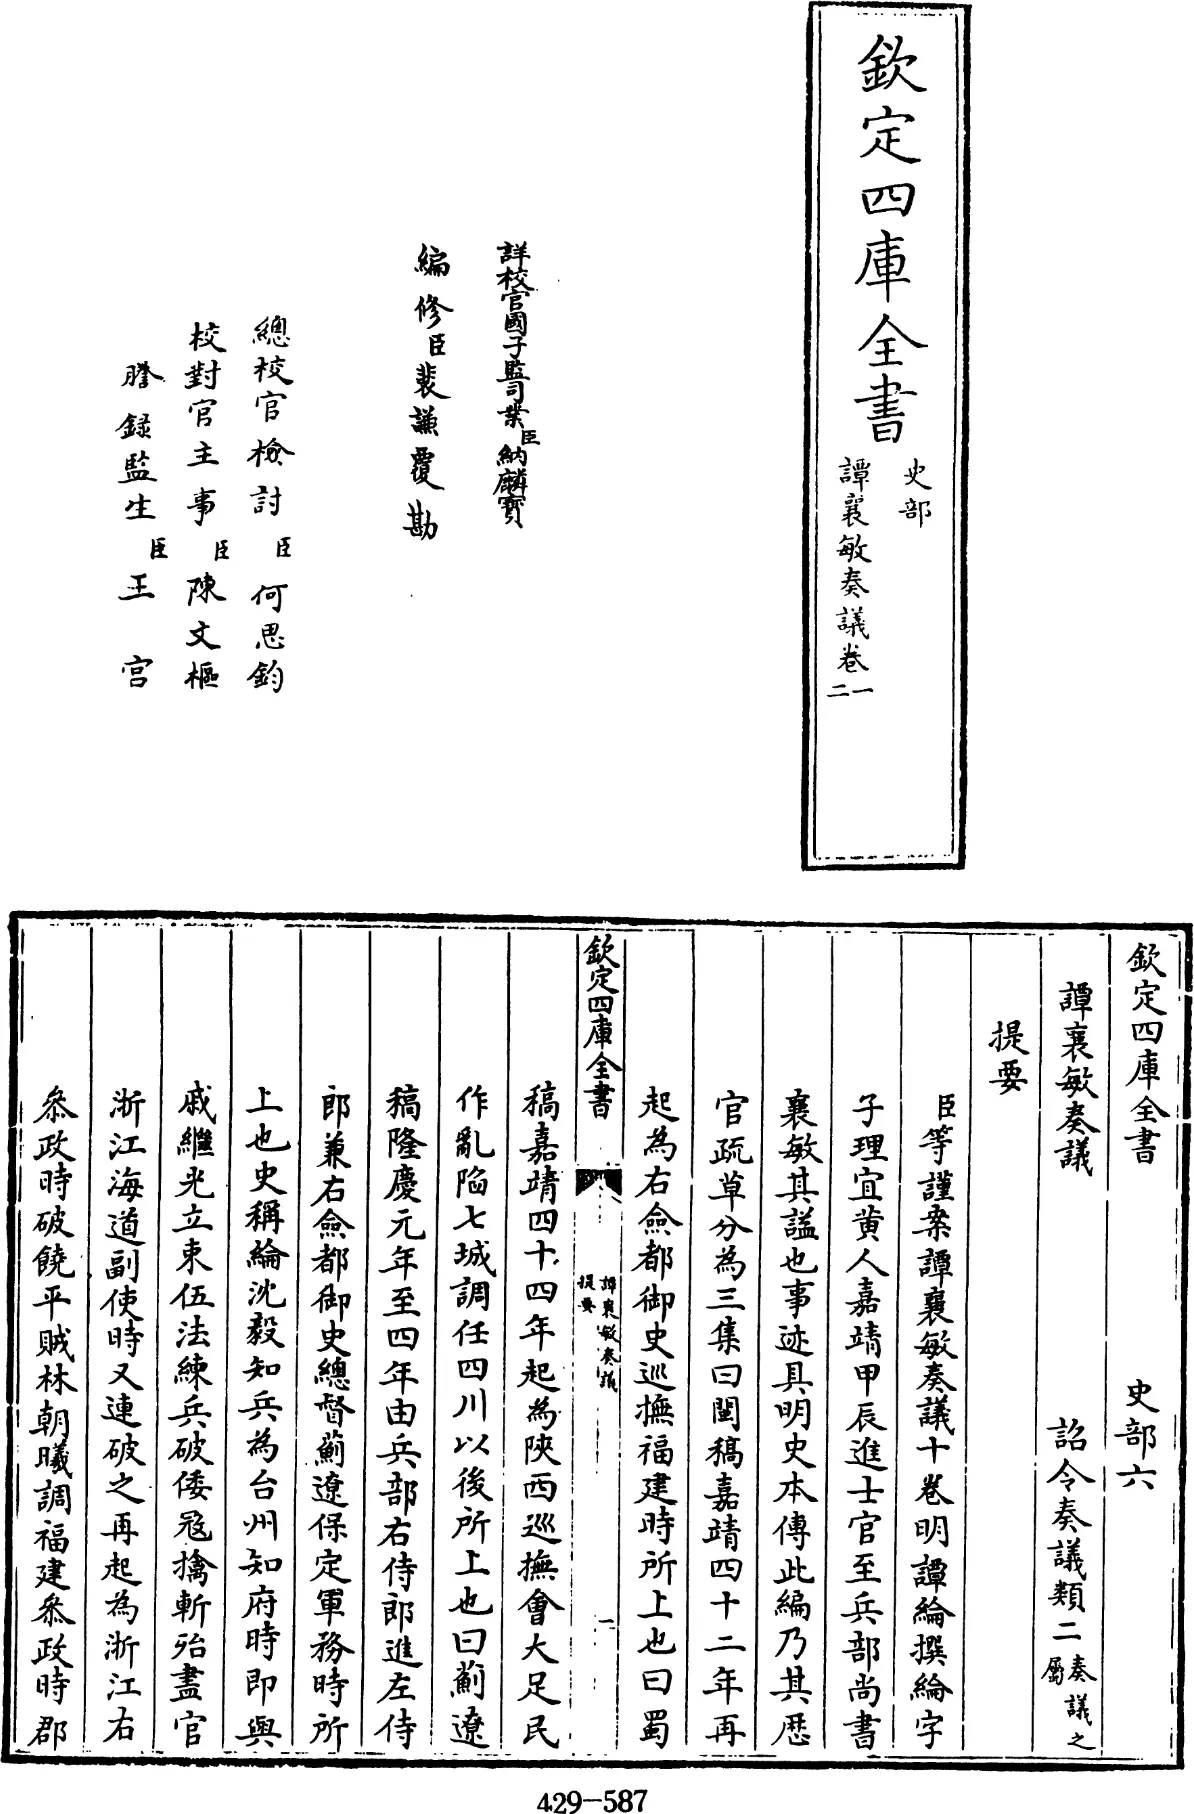 欽定四庫全書
史部
譚襄敏奏議卷一
二
詳校官國子監司業臣納麟寶
編修臣裴謙覆勘
總校官檢討臣何思鈞
校對官主事臣陳文樞
謄錄監生臣王宫
欽定四庫全書 史部六
譚襄敏奏議 詔令奏議類二奏議之屬
提要
臣等謹案譚襄敏奏議十卷明譚綸撰綸字
子理宜黄人嘉靖甲辰進士官至兵部尚書
襄敏其謚也事迹具明史本傳此編乃其歴
官疏草分為三集曰閩稿嘉靖四十二年再
起為右僉都御史巡撫福建時所上也曰蜀
欽定四庫全書
譚襄敏奏議
提要
一
稿嘉靖四十四年起為陝西巡撫會大足民
作亂陷七城調任四川以後所上也曰薊遼
稿隆慶元年至四年由兵部右侍郎進左侍
郎兼右僉都御史總督薊遼保定軍務時所
上也史稱綸沈毅知兵為台州知府時即與
戚繼光立束伍法練兵破倭冦擒斬殆盡官
浙江海道副使時又連破之再起為浙江右
叅政時破饒平賊林朝曦調福建叅政時郡
429-587